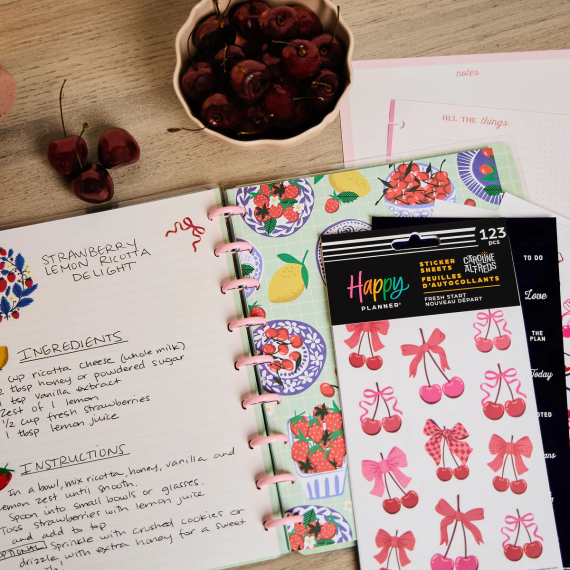 notes
ALL THE things
STRAWBERRY
LEMON RICOTTA
DELIGHT
INGREDIENTS
cup ricotta cheese (whole milk)
2 tbsp honey or powdered sugar
1 tsp vanilla extract
Zest of 1 lemon
1/2 cup fresh strawberries
1 tbsp lemon juice
INSTRUCTIONS
In a bowl, mix ricotta, honey, vanilla and
lemon zest until smooth.
Spoon into small bowls or glasses.
Toss strawberries with lemon juice
and add to top.
OPTIONAL Sprinkle with crushed cookies or
drizzle, with extra honey for a sweet
123
PCS
Happy
PLANNER®
STICKER
SHEETS
FEUILLES
D'AUTOCOLLANTS
CAROLINE
ALFREDS
FRESH START
NOUVEAU DÉPART
TO DO
Love
THE
PLAN
Today